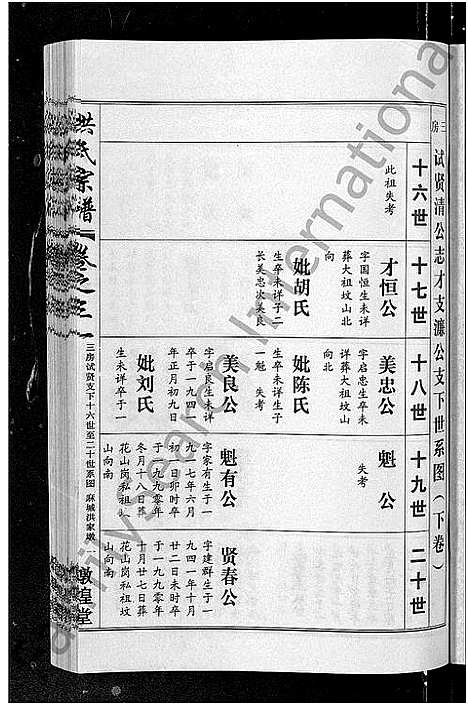 三房
试贤清公志才支濂公支下世系图（下卷）
十六世
十七世
十八世
十九世
二十世
此祖失考
才恒公
字国恒生卒未详
葬大祖坟山北
向
妣胡氏
生卒未详子二
长美忠次美良
美忠公
字启忠生卒未
详葬大祖坟山
向北
妣陈氏
生卒未详生子
一魁 失考
美良公
字启良生未详
卒于一九一四
年正月初九日
妣刘氏
生未详卒于一
魁公
失考
魁有公
字家有生于一
九一七年六月
初一日卯时卒
于一九九零年
冬月十八日葬
花山岗私祖坟
山向南
贤春公
字建群生于一
九四一年十月
廿二日未时卒
于一九九〇年
十月十七日葬
花山岗私祖坟
山向南
洪氏宗谱
卷之三
三房试贤支下十六世至二十世系图
麻城洪家墩
一
敦煌堂
dailysearch International